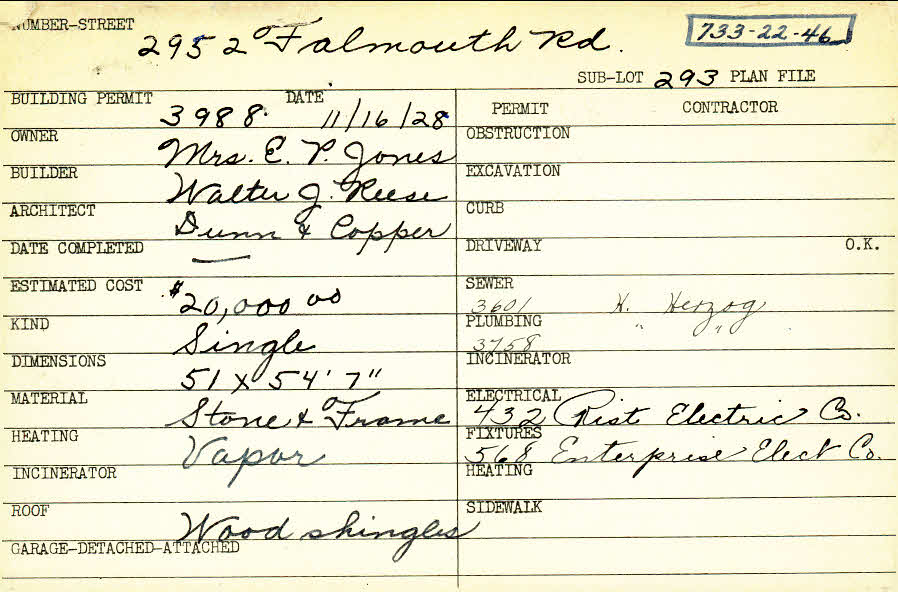 NUMBER-STREET 2952 Falmouth Rd. 733-22-46
SUB-LOT 293 PLAN FILE
BUILDING PERMIT 3988 DATE 11/16/28
PERMIT CONTRACTOR
OWNER Mrs. E. P. Jones
OBSTRUCTION
BUILDER Walter J. Reese
EXCAVATION
ARCHITECT Dunn & Copper
CURB
DATE COMPLETED —
DRIVEWAY O.K.
ESTIMATED COST $20,000 00
SEWER 3601 H. Herzog
KIND Single
PLUMBING 3758 " "
DIMENSIONS 51 x 54' 7"
INCINERATOR
MATERIAL Stone & Frame
ELECTRICAL 432 Rist Electric Co.
HEATING Vapor
FIXTURES 568 Enterprise Elect Co.
INCINERATOR
HEATING
ROOF Wood shingles
SIDEWALK
GARAGE-DETACHED-ATTACHED